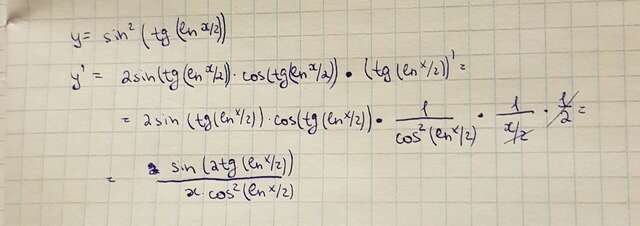 y = sin² (tg (ln x/2))
y' = 2sin(tg(ln x/2)) · cos(tg(ln x/2)) · (tg(ln x/2))' =
= 2sin (tg(ln x/2)) · cos(tg(ln x/2)) · 1/cos²(ln x/2) · 1/(x/2) · 1/2 =
= sin (2tg (ln x/2)) / x · cos²(ln x/2)